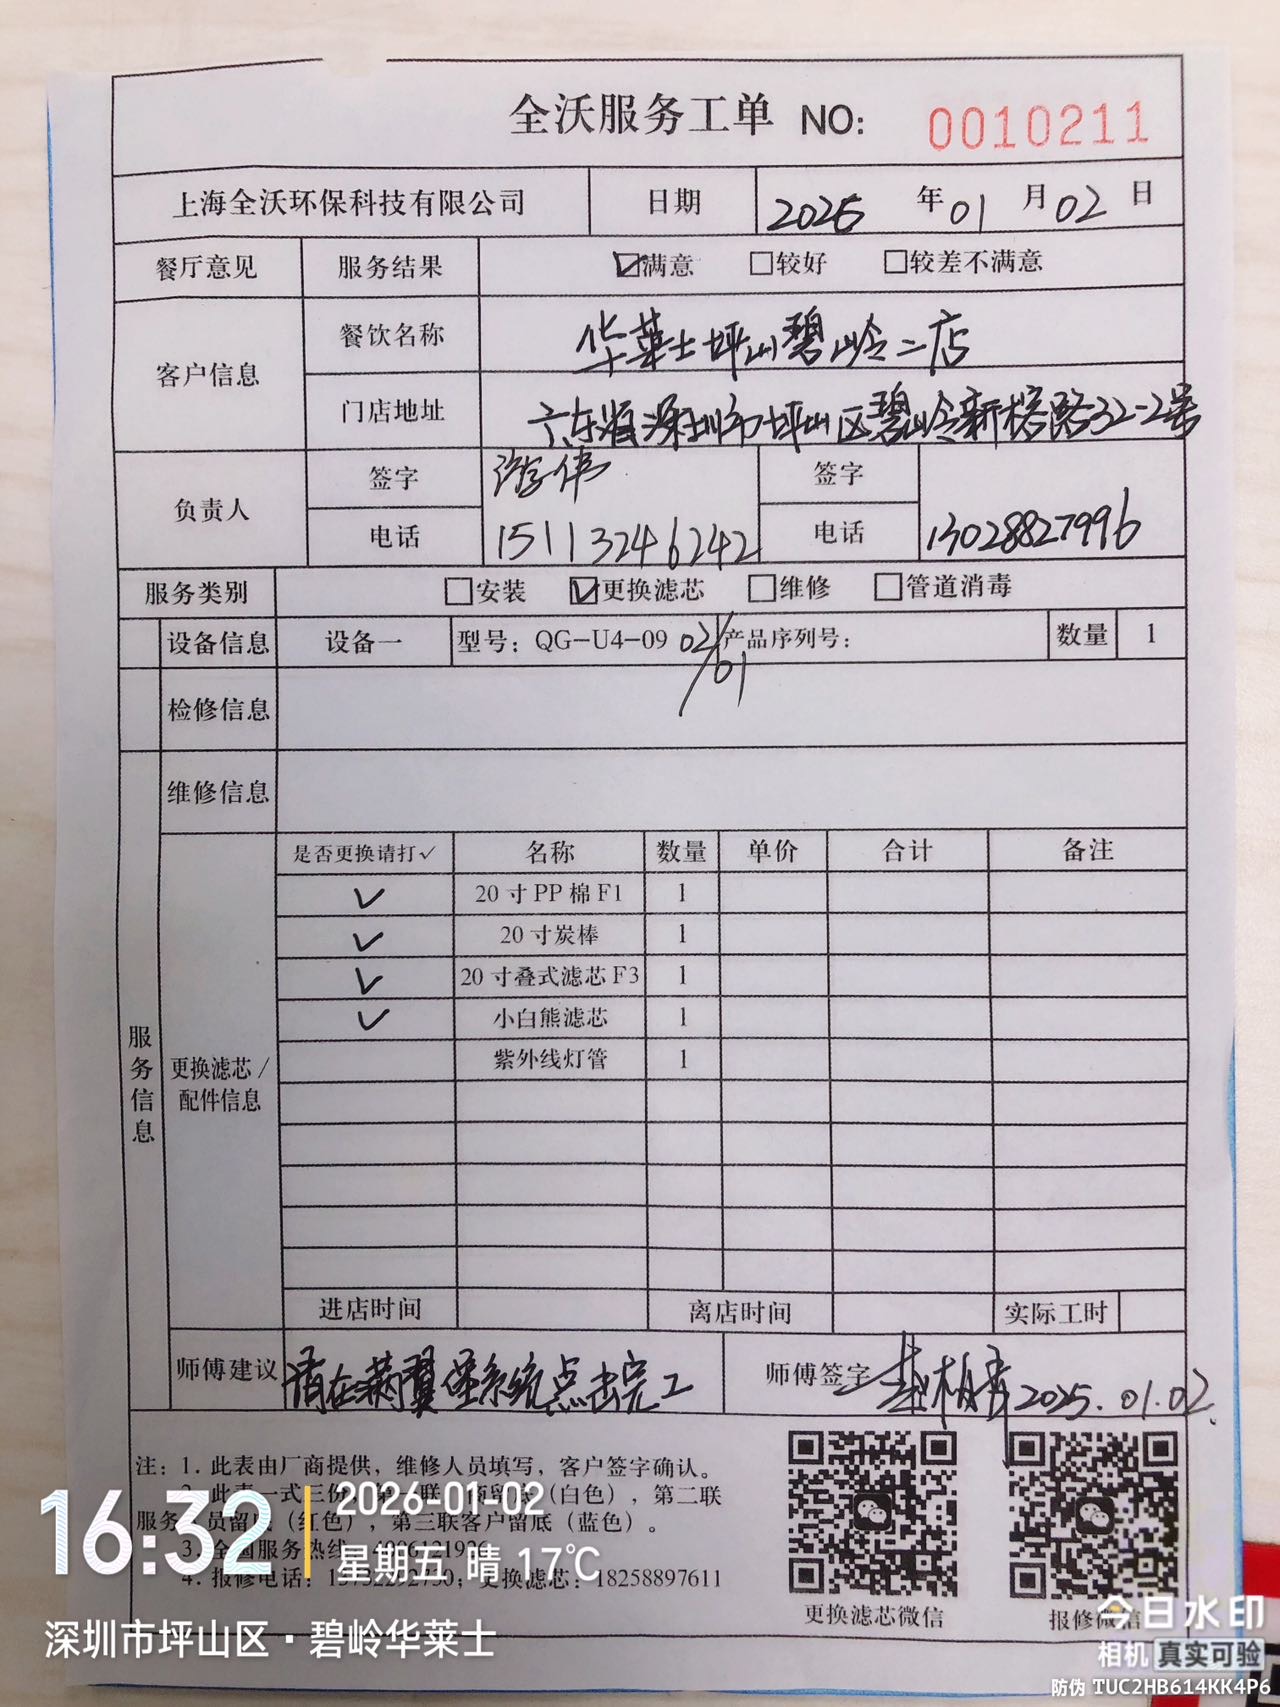 全沃服务工单 NO: 0010211
上海全沃环保科技有限公司 日期 2025 年 01 月 02 日
餐厅意见 服务结果 ☑满意 □较好 □较差不满意
客户信息 餐饮名称 华莱士坪山碧岭二店
门店地址 广东省深圳市坪山区碧岭新榕路32-2号
负责人 签字 游伟 签字
电话 15113246242 电话 13028827996
服务类别 □安装 ☑更换滤芯 □维修 □管道消毒
设备信息 设备一 型号：QG-U4-09 02/01 产品序列号： 数量 1
检修信息
维修信息
服务信息
更换滤芯/配件信息
是否更换请打✓ 名称 数量 单价 合计 备注
✓ 20寸PP棉F1 1
✓ 20寸炭棒 1
✓ 20寸叠式滤芯F3 1
✓ 小白熊滤芯 1
紫外线灯管 1
进店时间 离店时间 实际工时
师傅建议 请在满翼堡系统点击完工 师傅签字 2025.01.02.
注：1. 此表由厂商提供，维修人员填写，客户签字确认。
此表一式三份，第 联 商留底（白色），第二联
服务 员留底（红色），第三联客户留底（蓝色）。
3. 全国服务热线
4. 报修电话：13732292750；更换滤芯：18258897611
更换滤芯微信 报修微信
16:32 2026-01-02
星期五 晴 17℃
深圳市坪山区·碧岭华莱士
今日水印
相机 真实可验
防伪 TUC2HB614KK4P6